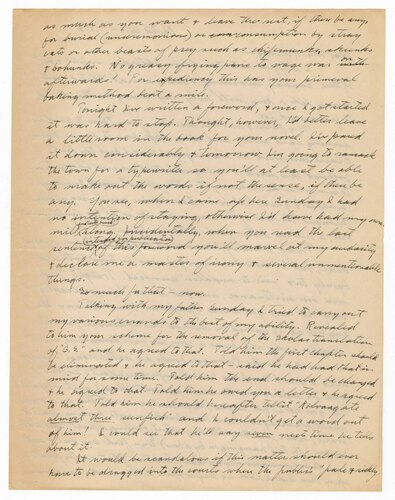 as much as you want & leave the rest, if there be any,
for burial (undermanure) or consumption by stray
cats or other beasts of prey such as chipmunks, skunks
& bohunks. No greasy frying pans to wage war on
afterwards! For expediency this has your primeval
baking method beat a mile.
Tonight I've written a foreword, & once I got started
it was hard to stop. Thought, however, I'd better leave
a little room in the book for your novel. I've pared
it down considerably & tomorrow I'm going to ransack
the town for a typewriter so you'll at least be able
to make out the words if not the sense, if there be
any. You see, when I came up here Sunday I had
no intention of staying, otherwise I'd have had my own
mill along. Incidentally, when you read the last
sentence of this foreword you'll marvel at my audacity
& declare me a master of irony & several unmentionable
things.
So much for that — now.
Talking with my father Sunday I tried to carry out
my various errands to the best of my ability. Revealed
to him your scheme for the removal of the Scholar translation
of "G.G." and he agreed to that. Told him the first chapter should
be eliminated & he agreed to that — said he had had that in
mind for some time. Told him the end should be changed
& he agreed to that. Told him he owed you a letter & he agreed
to that. Told him he should hereafter tell it
almost three and I couldn't get a word out
of him! I could see that he'll say seven next time he tells
about it.
It would be scandalous if this matter should ever
have to be dragged into the courts where the public's "pale & sickly